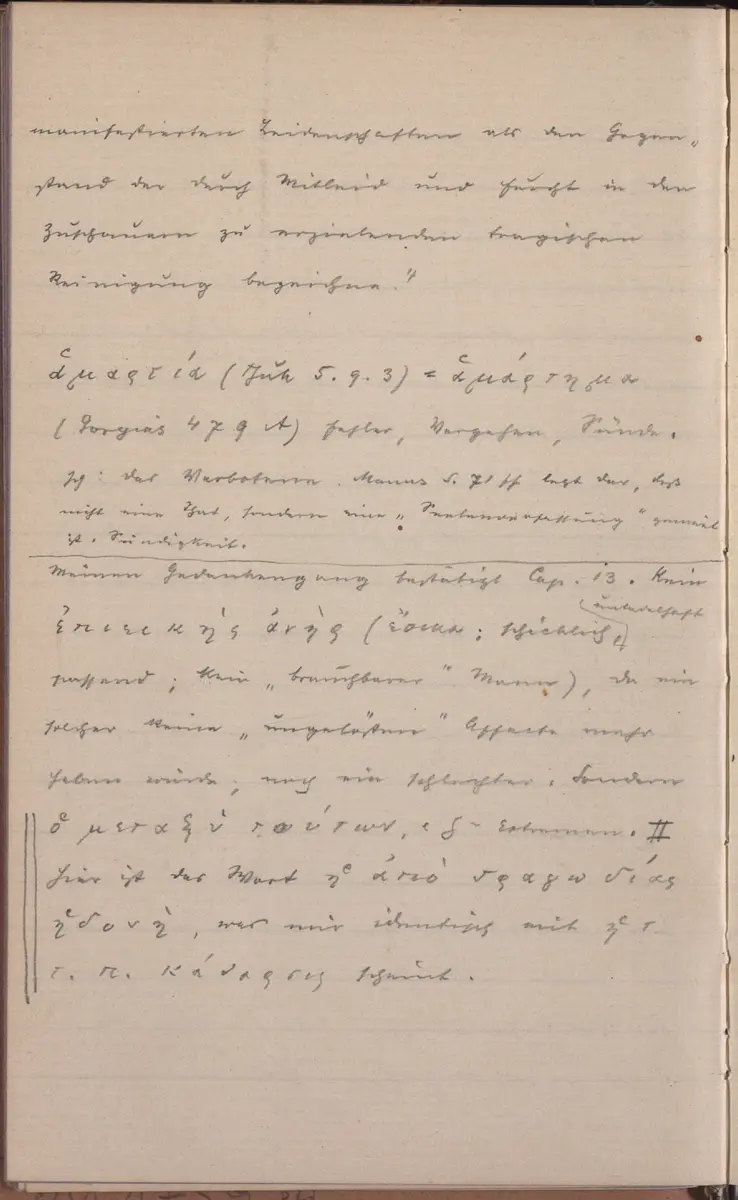 manifestierten Leidenschaften als den Gegen„
stand der durch Mitleid und Furcht in den
Zuschauern zu erzielenden tragischen
Reinigung bezeichne."
ἁμαρτία (Thuk 5. 9. 3) = ἁμάρτημα
(Gorgias 479 A) Fehler, Vergehen, Sünde.
das Verbotene. Manns S. 71 ff legt dar, daß
nicht eine That, sondern eine „Seelenverfassung" gemeint
ist. Sündigkeit.
Meinen Gedankengang bestätigt Cap. 13. Kein
ἐπιεικὴς ἀνὴρ (ἔοικα; schicklich,
passend; kein „brauchbarer" Mann), da ein
solcher keine „ungelösten" Affecte mehr
haben würde, noch ein schlechter. Sondern
ὁ μεταξὺ τούτων, Extremen. II
Hier ist das Wort ἡ ἀπὸ τραγῳδίας
ἡδονὴ, was mir identisch mit ἡ τ
τ. π. κάθαρσις scheint.